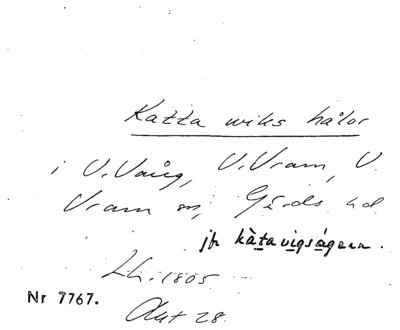 Katta wiks hålor
i V. Vång, V. Vram, V.
Vram sn, Gärds hd
jfr kàtavigságenn.
Lh. 1805
Nr 7767.
Akt 28